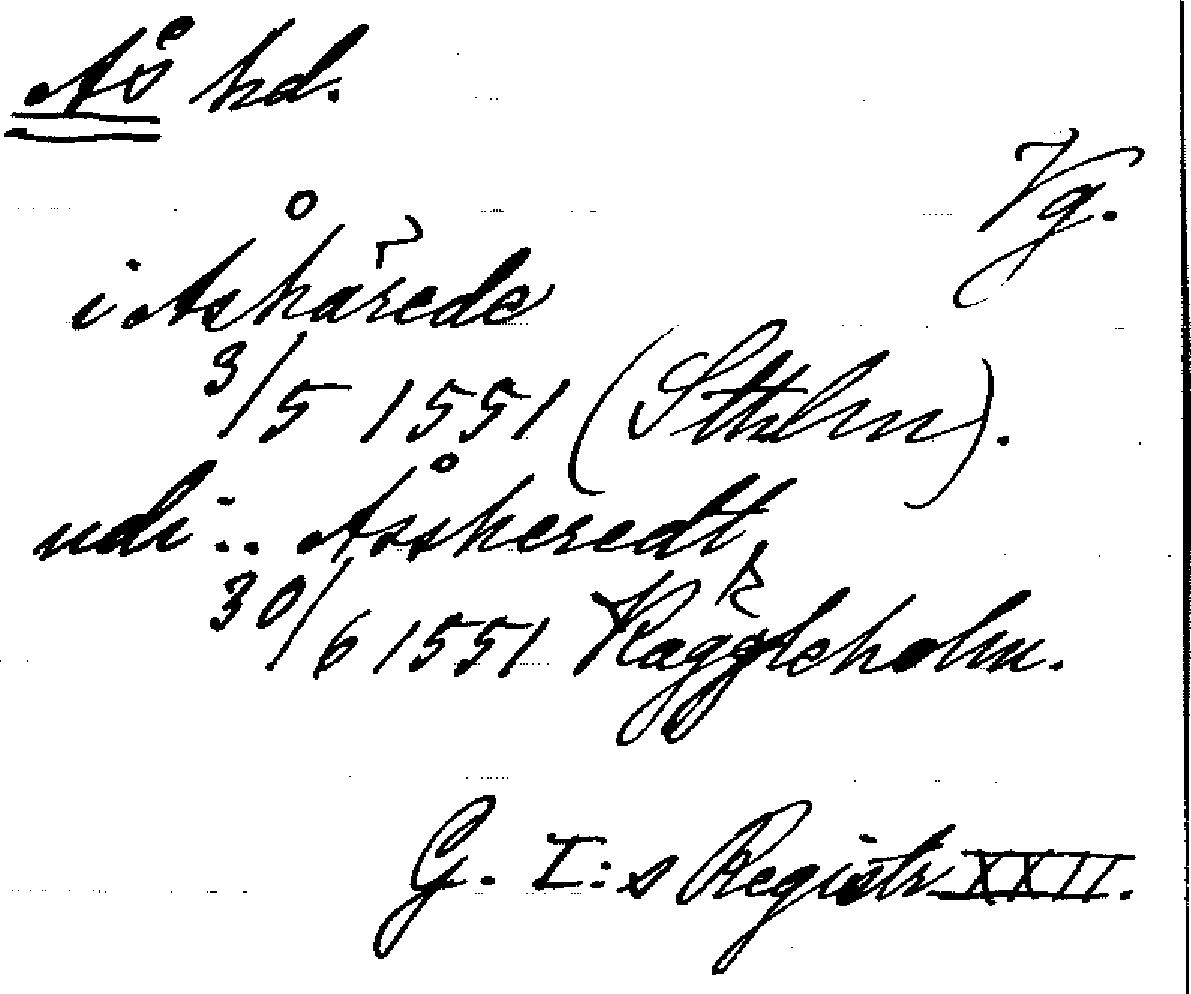 Ås hd.
Vg.
i Åshärede
3/5 1551 (Sthlm).
udi .. Åssheredt,
30/6 1551 Käggleholm.
G. I:s Registr XXII.